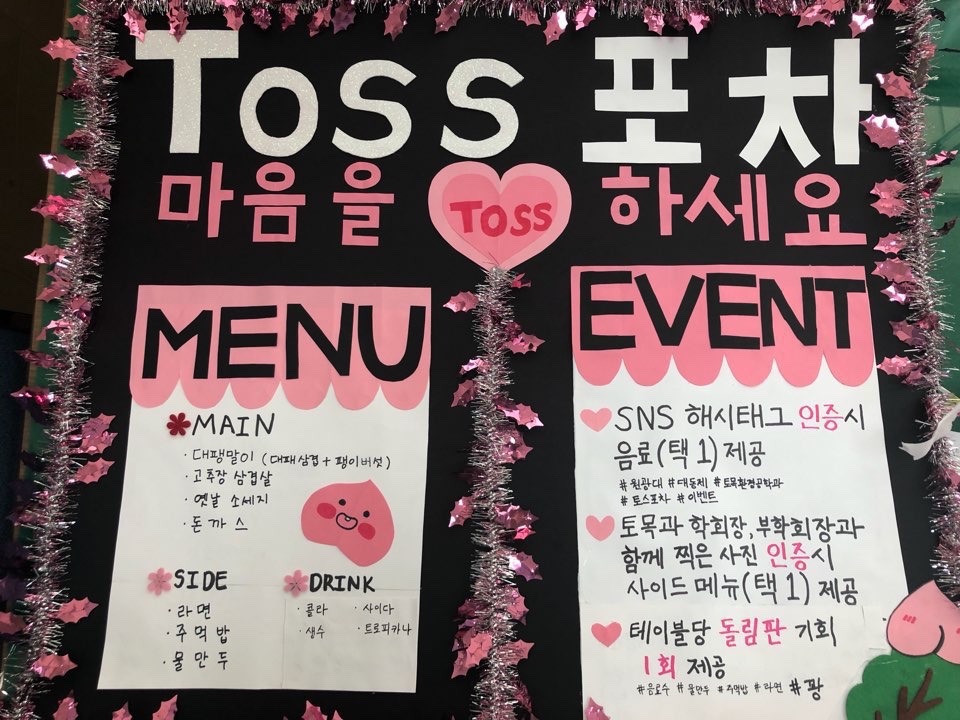 Toss 포차
마음을 TOSS 하세요
MENU
MAIN
· 대팽말이 (대패삼겹+팽이버섯)
· 고추장 삼겹살
· 옛날 소세지
· 돈까스
SIDE
· 라면
· 주먹밥
· 물만두
DRINK
· 콜라 · 사이다
· 생수 · 트로피카나
EVENT
SNS 해시태그 인증시
음료(택1) 제공
#원광대 #대동제 #토목환경공학과
#토스포차 #이벤트
토목과 학회장, 부학회장과
함께 찍은 사진 인증시
사이드 메뉴(택1) 제공
테이블당 돌림판 기회
1회 제공
#음료수 #물만두 #주먹밥 #라면 #꽝